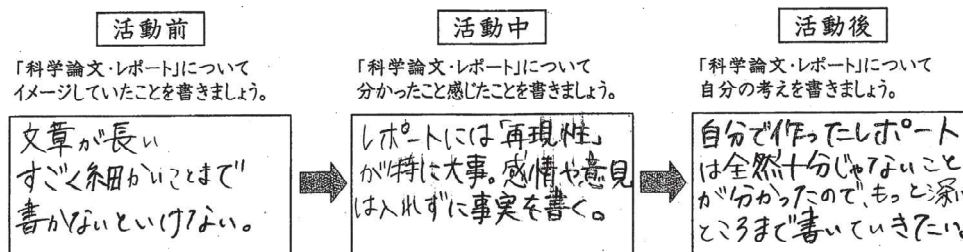 活動前
「科学論文・レポート」について
イメージしていたことを書きましょう。
文章が長い
すごく細かいことまで
書かないといけない。
活動中
「科学論文・レポート」について
分かったこと感じたことを書きましょう。
レポートには「再現性」
が特に大事。感情や意見
は入れずに事実を書く。
活動後
「科学論文・レポート」について
自分の考えを書きましょう。
自分で作ったレポート
は全然十分じゃないこと
が分かったので、もっと深い
ところまで書いていきたい。